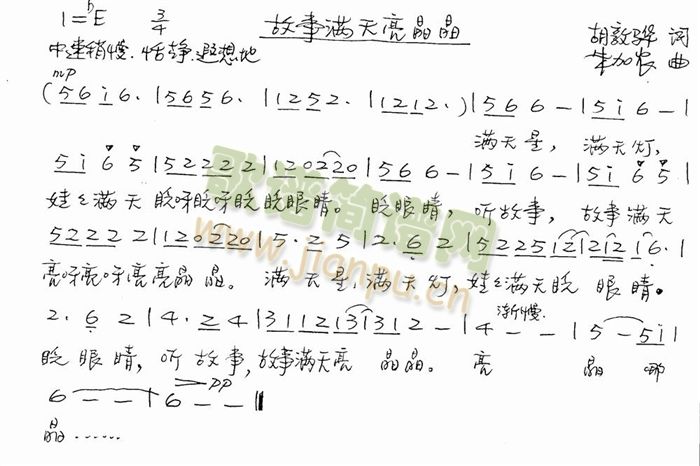 1=ᵇE 3/4 故事满天亮晶晶 胡敦骅 词
中速稍慢、恬静、遐想地 朱加农 曲
mp
(5 6 i 6· | 5 6 5 6· | 1 2 5 2· | 1 2 1 2· ) | 5 6 6 – | 5 i 6 – |
满天星, 满天灯,
5 i 6 5 | 5 2 2 2 2 | 1 2 0 2 2 0 | 5 6 6 – | 5 i 6 – | 5 i 6 5 |
娃娃满天 眨呀眨呀眨 眨眼睛。 眨眼睛, 听故事, 故事满天
5 2 2 2 2 | 1 2 0 2 2 0 | 5· 2 5 | 2· 6 2 | 5 2 2 5 1 2 | 2 1 2 1 6· |
亮呀亮呀亮亮晶晶。 满天星, 满天灯, 娃娃满天眨 眼睛。
渐慢
2· 6 2 | 4· 2 4 | 3 1 1 2 1 3 1 3 1 2 – | 4 – – | 5 – 5 i |
眨眼睛, 听故事, 故事满天亮 晶晶。 亮 晶 哪
pp
6 – – | 6 – – ‖
晶……
歌谱简谱网
www.jianpu.cn